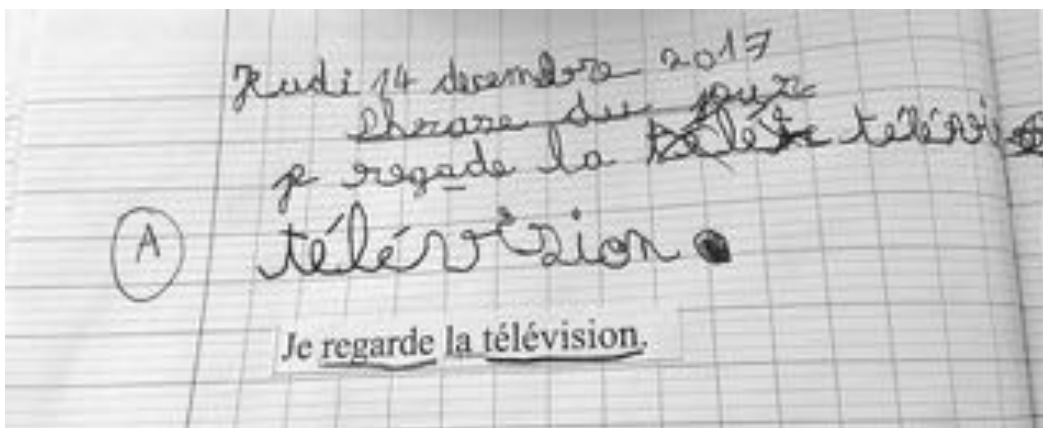 Jeudi 14 decembre 2017
Phrase du jour
je regade la télévi
A
télévision.
Je regarde la télévision.